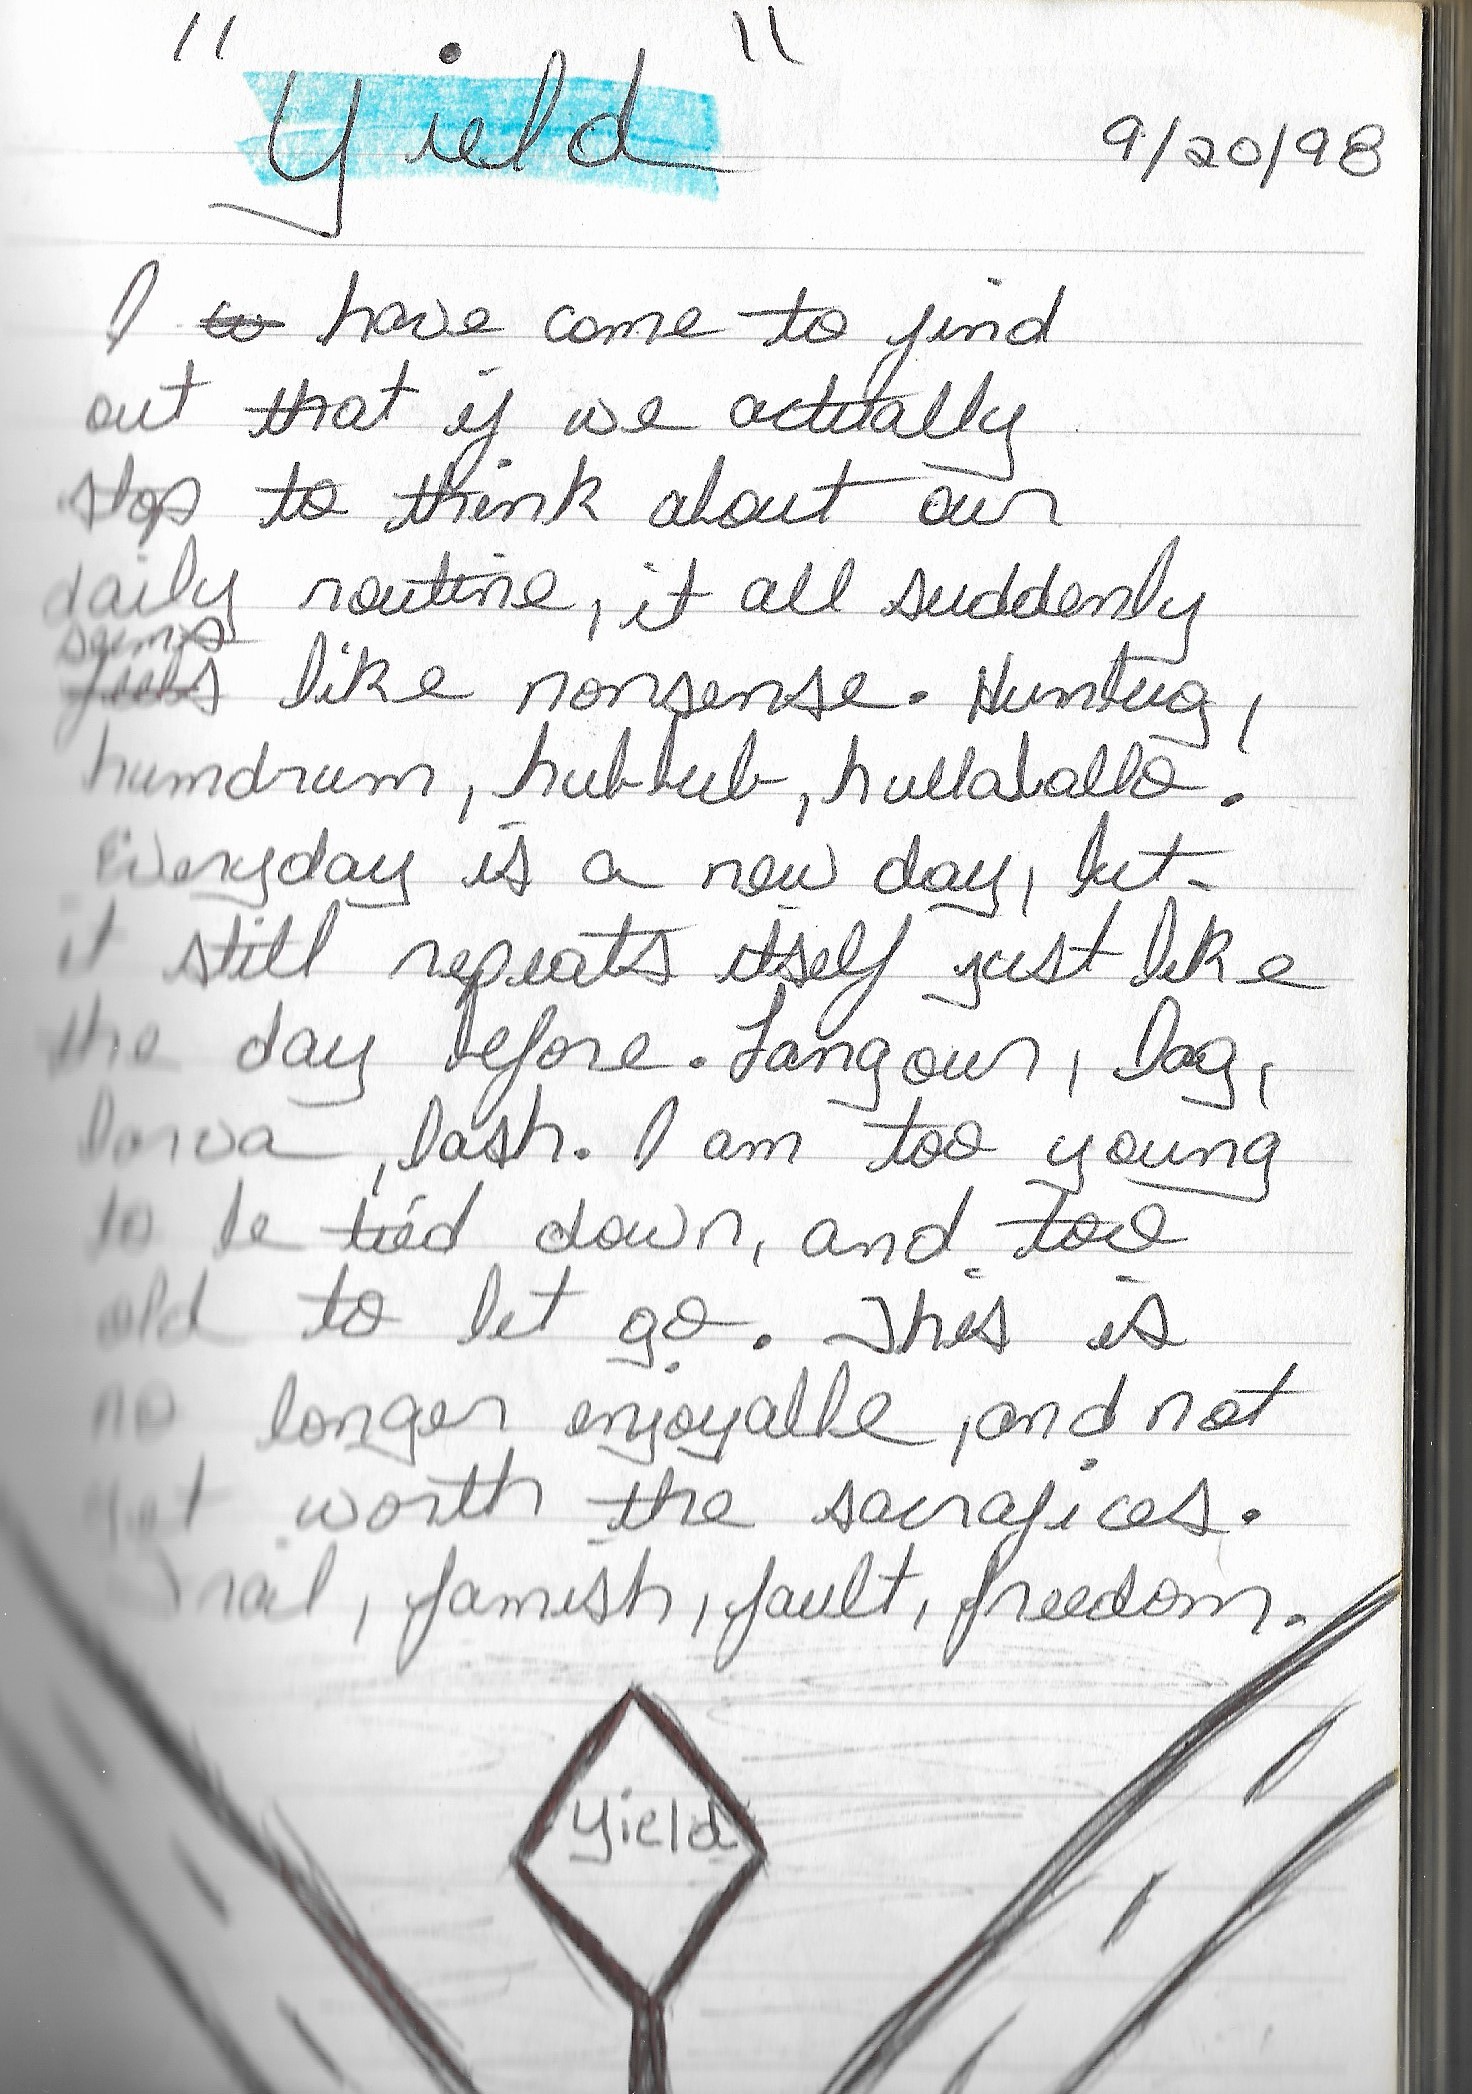 "Yield"
9/20/98
I w have come to find
out that if we actually
stop to think about our
daily routine, it all suddenly
seems
feels like nonsense. Humbug,
humdrum, hubbub, hullaballo.
Everyday is a new day, but
it still repeats itself just like
the day before. Langour, lag,
larva, lash. I am too young
to be tied down, and too
old to let go. This is
no longer enjoyable, and not
yet worth the sacrafices.
frail, famish, fault, freedom.
Yield